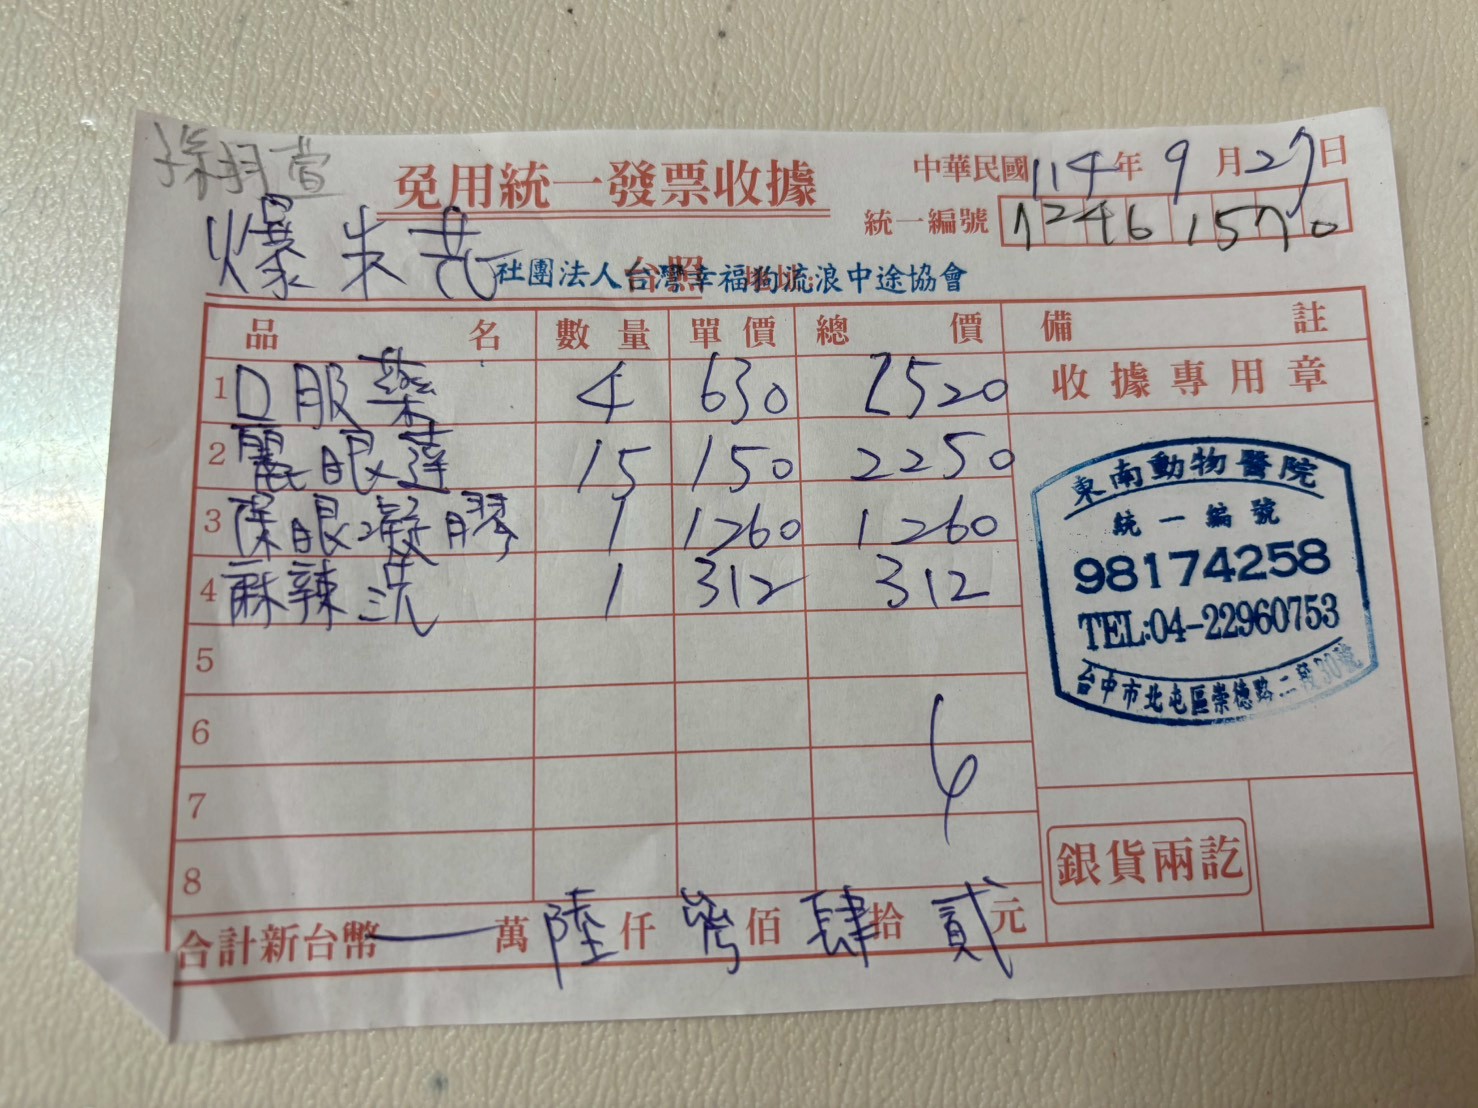 免用統一發票收據
中華民國114年9月27日
統一編號 72461570
爆米花
社團法人台灣幸福狗流浪中途協會
台照
品名 數量 單價 總價 備註
1 口服藥 4 630 2520
2 麗眼蓮 15 150 2250
3 保眼凝膠 1 1260 1260
4 麻辣洗 1 312 312
5
6
7
8
收據專用章
東南動物醫院
統一編號
98174258
TEL:04-22960753
台中市北屯區崇德路二段30號
銀貨兩訖
合計新台幣 萬陸仟參佰肆拾貳元